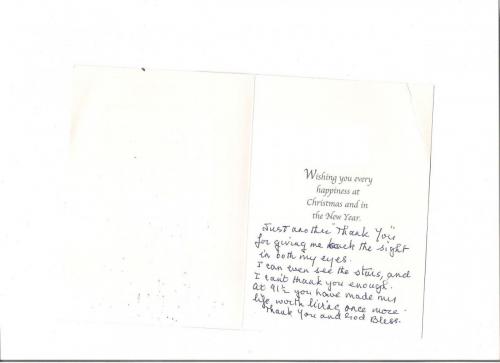 Wishing you every
happiness at
Christmas and in
the New Year.
Just another "Thank You"
for giving me back the sight
in both my eyes.
I can even see the stars, and
I can't thank you enough.
At 91½ you have made my
life worth living once more.
Thank You and God Bless.